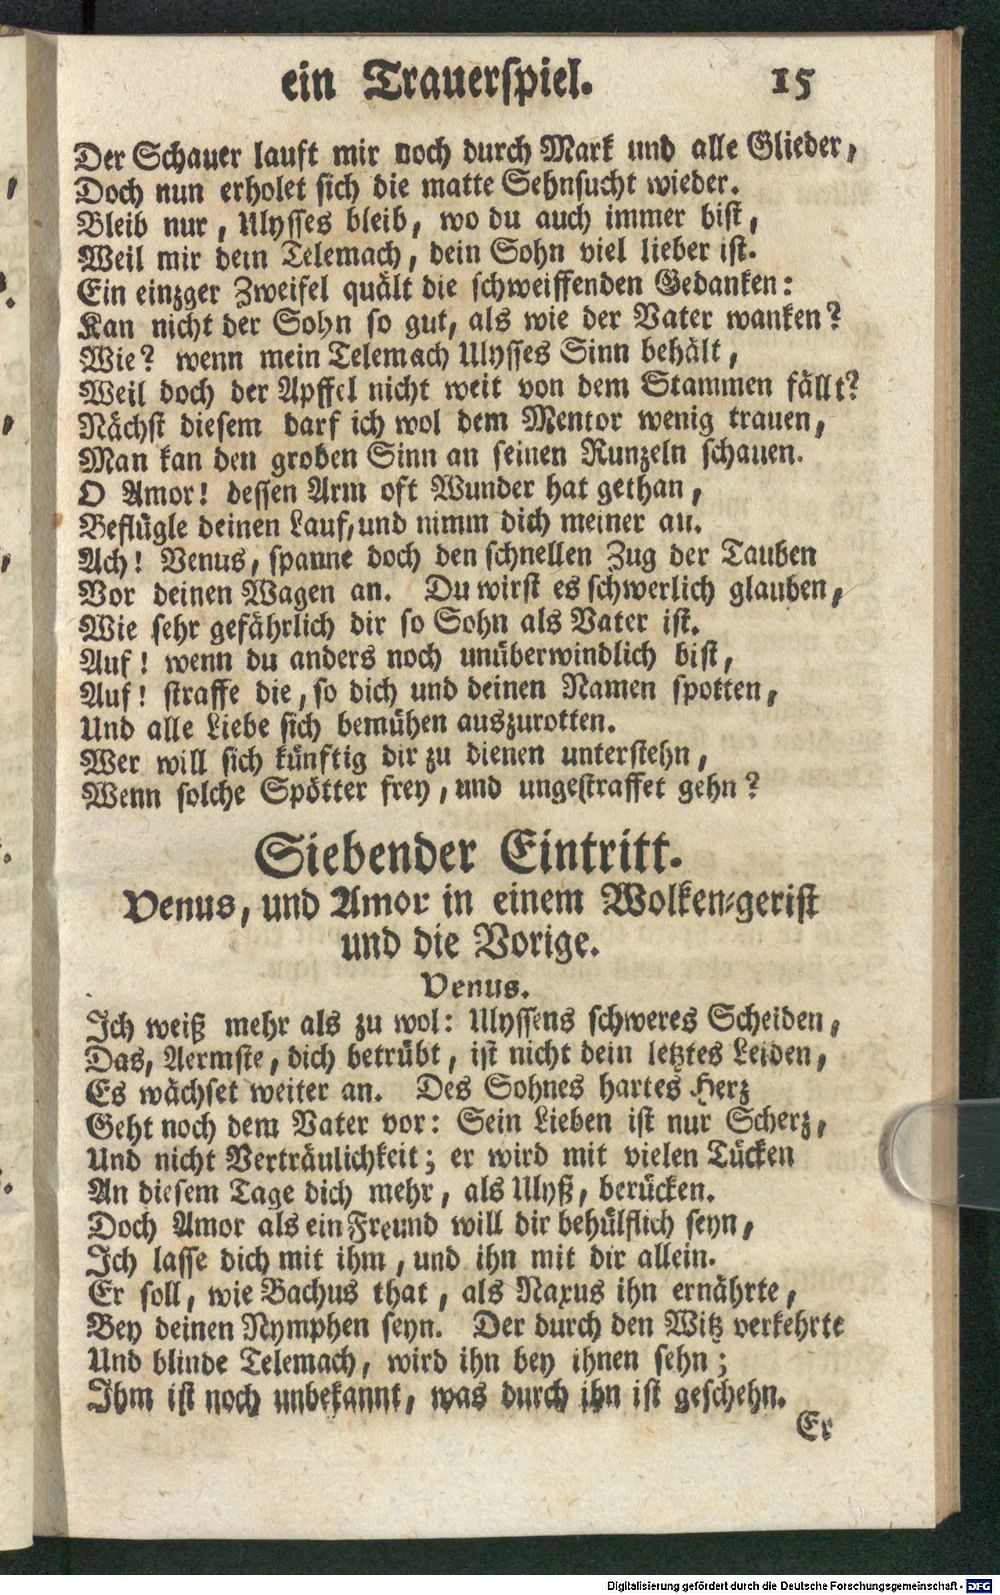 ein Trauerspiel. 15
Der Schauer lauft mir noch durch Mark und alle Glieder,
Doch nun erholet sich die matte Sehnsucht wieder.
Bleib nur, Ulysses bleib, wo du auch immer bist,
Weil mir dein Telemach, dein Sohn viel lieber ist.
Ein einzger Zweifel quält die schweiffenden Gedanken:
Kan nicht der Sohn so gut, als wie der Vater wanken?
Wie? wenn mein Telemach Ulysses Sinn behält,
Weil doch der Apffel nicht weit von dem Stammen fällt?
Nächst diesem darf ich wol dem Mentor wenig trauen,
Man kan den groben Sinn an seinen Runzeln schauen.
O Amor! dessen Arm oft Wunder hat gethan,
Beflügle deinen Lauf, und nimm dich meiner an.
Ach! Venus, spanne doch den schnellen Zug der Tauben
Vor deinen Wagen an. Du wirst es schwerlich glauben,
Wie sehr gefährlich dir so Sohn als Vater ist.
Auf! wenn du anders noch unüberwindlich bist,
Auf! straffe die, so dich und deinen Namen spotten,
Und alle Liebe sich bemühen auszurotten.
Wer will sich künftig dir zu dienen unterstehn,
Wenn solche Spötter frey, und ungestraffet gehn?
Siebender Eintritt.
Venus, und Amor in einem Wolken-gerist
und die Vorige.
Venus.
Ich weiß mehr als zu wol: Ulyssens schweres Scheiden,
Das, Aermste, dich betrübt, ist nicht dein letztes Leiden,
Es wächset weiter an. Des Sohnes hartes Herz
Geht noch dem Vater vor: Sein Lieben ist nur Scherz,
Und nicht Verträulichkeit; er wird mit vielen Tücken
An diesem Tage dich mehr, als Ulyß, berücken.
Doch Amor als ein Freund will dir behülflich seyn,
Ich lasse dich mit ihm, und ihn mit dir allein.
Er soll, wie Bachus that, als Naxus ihn ernährte,
Bey deinen Nymphen seyn. Der durch den Witz verkehrte
Und blinde Telemach, wird ihn bey ihnen sehn;
Ihm ist noch unbekannt, was durch ihn ist geschehn.
Er
Digitalisierung gefördert durch die Deutsche Forschungsgemeinschaft - DFG